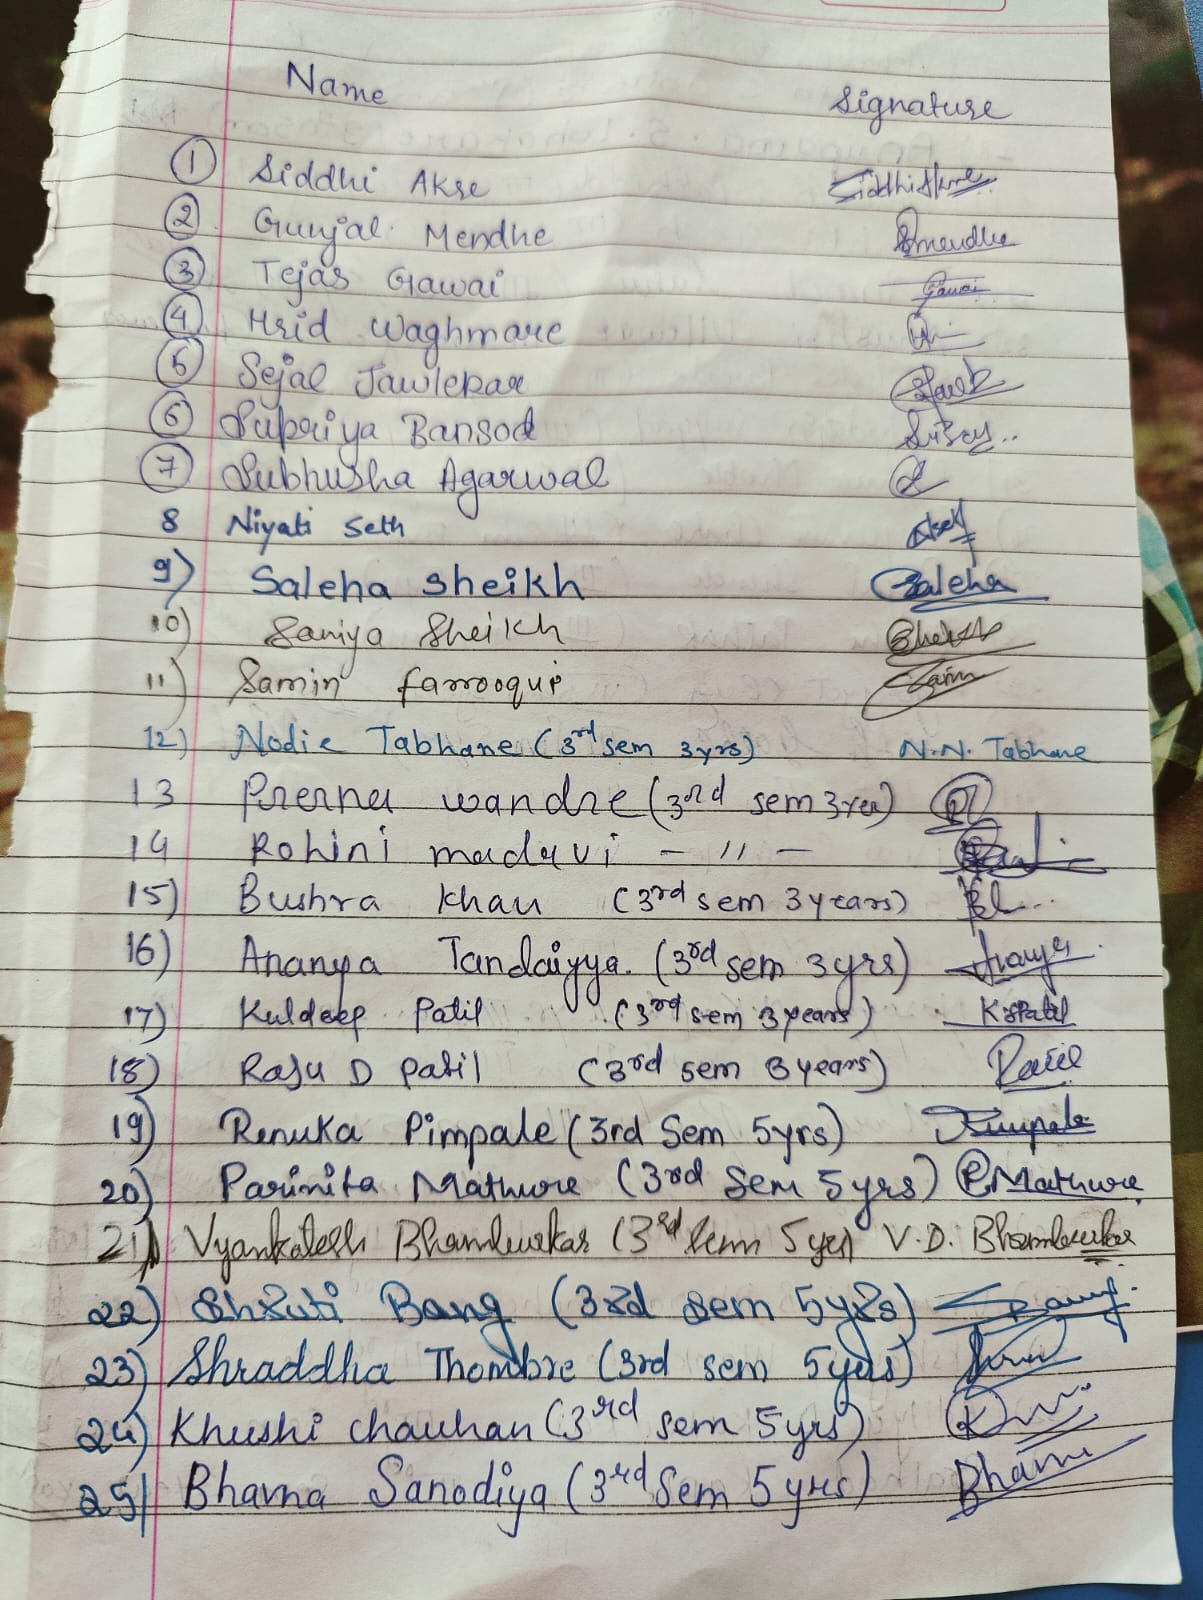 Name Signature
1 Siddhi Akre Siddhi Akre
2 Gunjal Mendhe Gmendhe
3 Tejas Gawai Gawai
4 Hrid Waghmare
5 Sejal Jawlekar
6 Supriya Bansod
7 Subhusha Agarwal
8 Niyati Seth
9) Saleha Sheikh Saleha
10) Saniya Sheikh
11) Samin farrooqui
12) Nodie Tabhane (3rd sem 3yrs) N.N. Tabhane
13 Prerna wandre (3rd sem 3yea)
14 Rohini madavi - 11 -
15) Bushra Khan (3rd sem 3years)
16) Ananya Tandaiyya. (3rd sem 3yrs)
17) Kuldeep Patil (3rd sem 3years) KSPatil
18) Raju D Patil (3rd sem 3years) Patil
19) Renuka Pimpale (3rd Sem 5yrs) Pimpale
20) Parinita Mathure (3rd Sem 5yrs) PMathure
21) Vyankatesh Bhandurkar (3rd Sem 5yrs) V.D. Bhandurkar
22) Shruti Bang (3rd sem 5yrs)
23) Shraddha Thombre (3rd sem 5yrs)
24) Khushi chauhan (3rd sem 5yrs)
25) Bhavna Sanodiya (3rd Sem 5yrs)